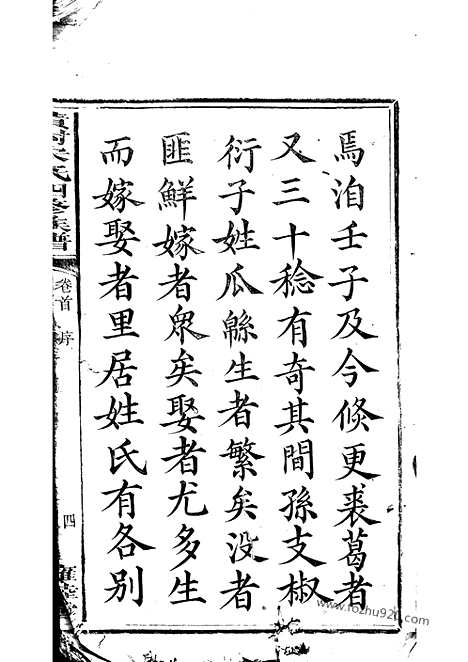 焉洎壬子及今倐更裘葛者
又三十稔有奇其間孫支椒
衍子姓瓜緜生者繁矣没者
匪鮮嫁者衆矣娶者尤多生
而嫁娶者里居姓氏有各別
氏四修族譜
卷首
序
四
www.fozhu920.com